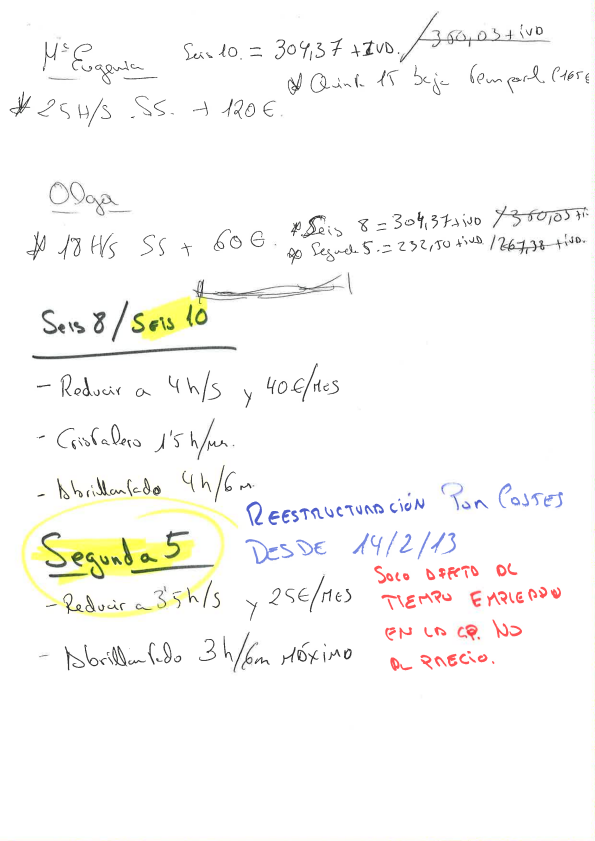 Mª Eugenia Seis 10. = 304,37 + IVA. / 360,03 + iva
* Quinta 15 baja temporal (165€
* 25 H/S. SS. + 120 €.
Olga
* Seis 8 = 304,37 + iva / 360,03 + i
* 18 H/s SS + 60 €. * Segunda 5. = 232,50 + iva / 267,38 + iva.
Seis 8 / Seis 10
- Reducir a 4 h/s y 40 €/mes
- Cristalero 1'5 h/m.
- Abrillantado 4 h/6 m.
REESTRUCTURACIÓN POR COSTES
DESDE 14/2/13
Segunda 5
- Reducir a 3'5 h/s y 25 €/mes
- Abrillantado 3 h/6m MÁXIMO
SOLO AFECTA AL
TIEMPO EMPLEADO
EN LA CP. NO
AL PRECIO.